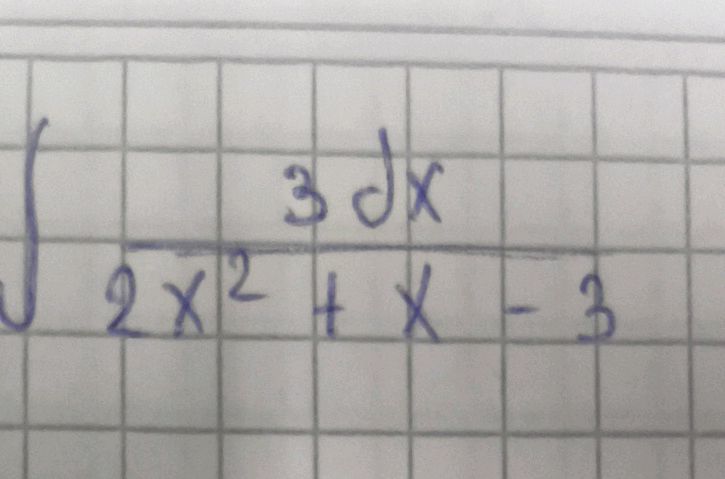 ∫ 3 dx / 2x² + x - 3